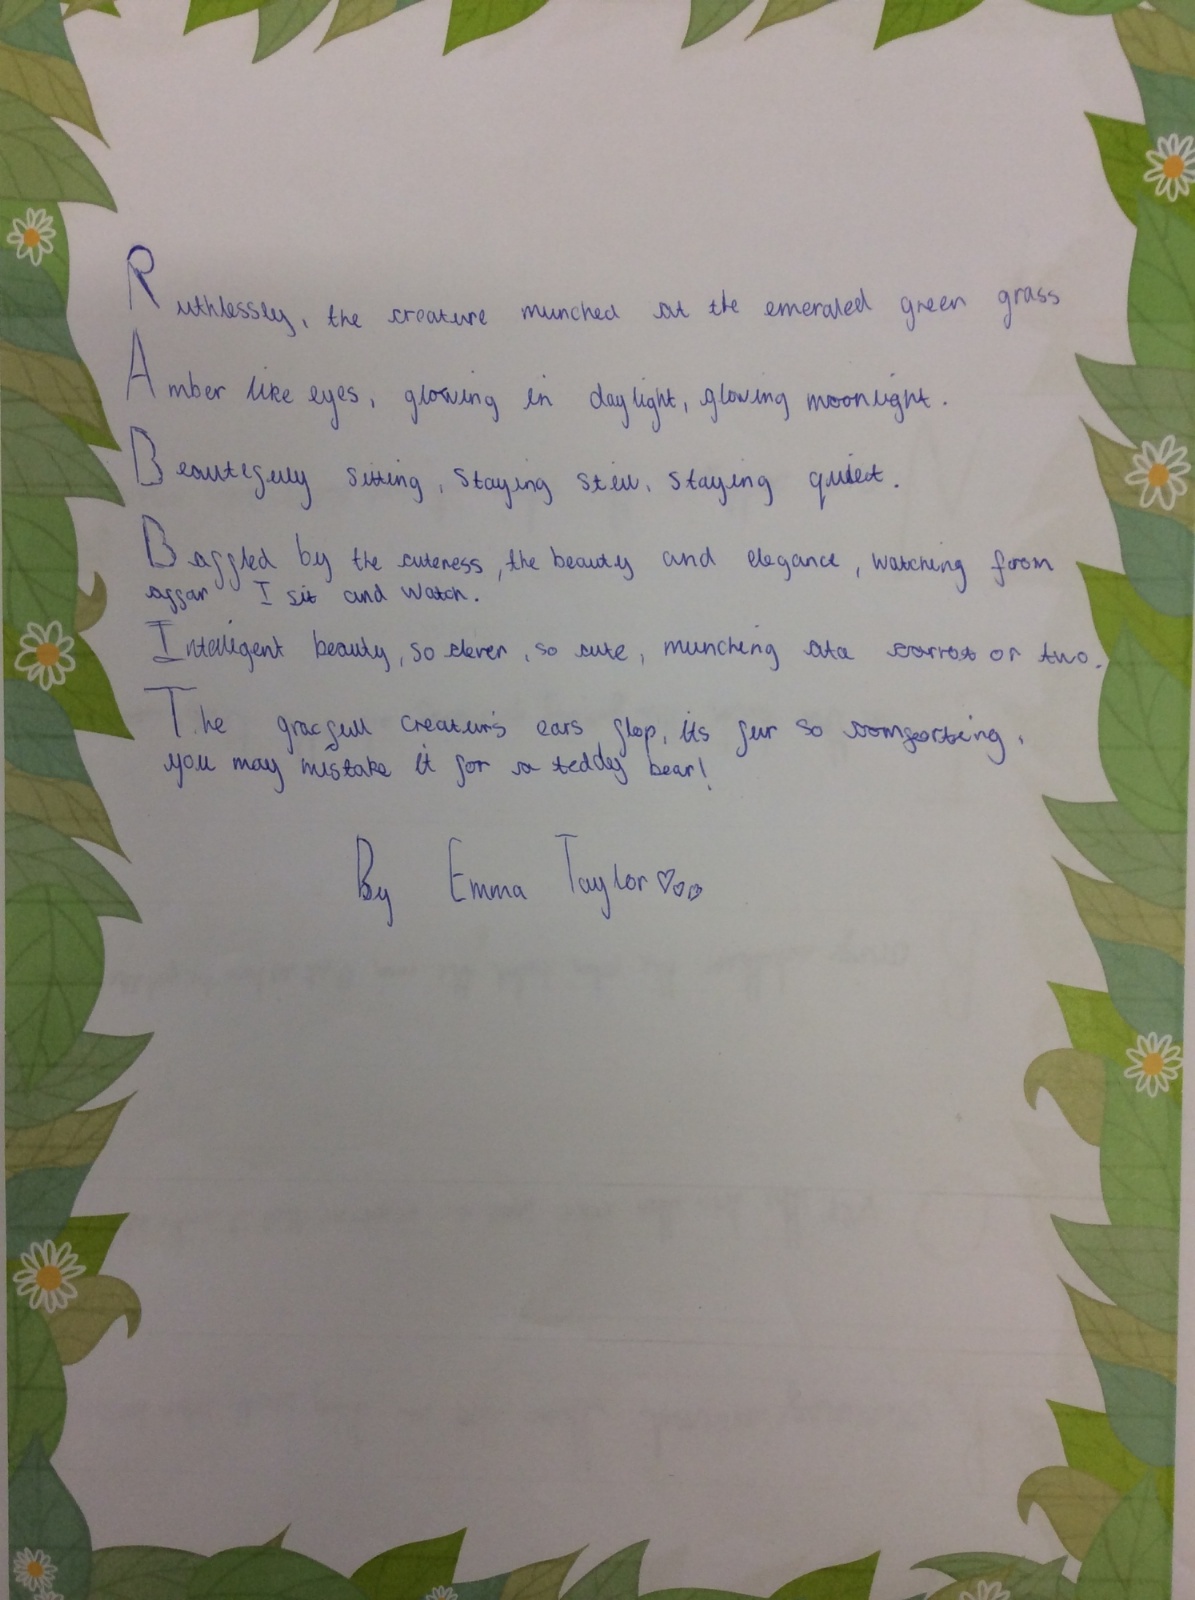 Ruthlessly, the creature munched at the emeraled green grass
Amber like eyes, glowing in daylight, glowing moonlight.
Beautifully sitting, staying still, staying quiet.
Baffled by the cuteness, the beauty and elegance, watching from
affar I sit and watch.
Intelligent beauty, so clever, so cute, munching at a carrot or two.
The gracfull creatur's ears flop, its fur so comforting,
you may mistake it for a teddy bear!
By Emma Taylor